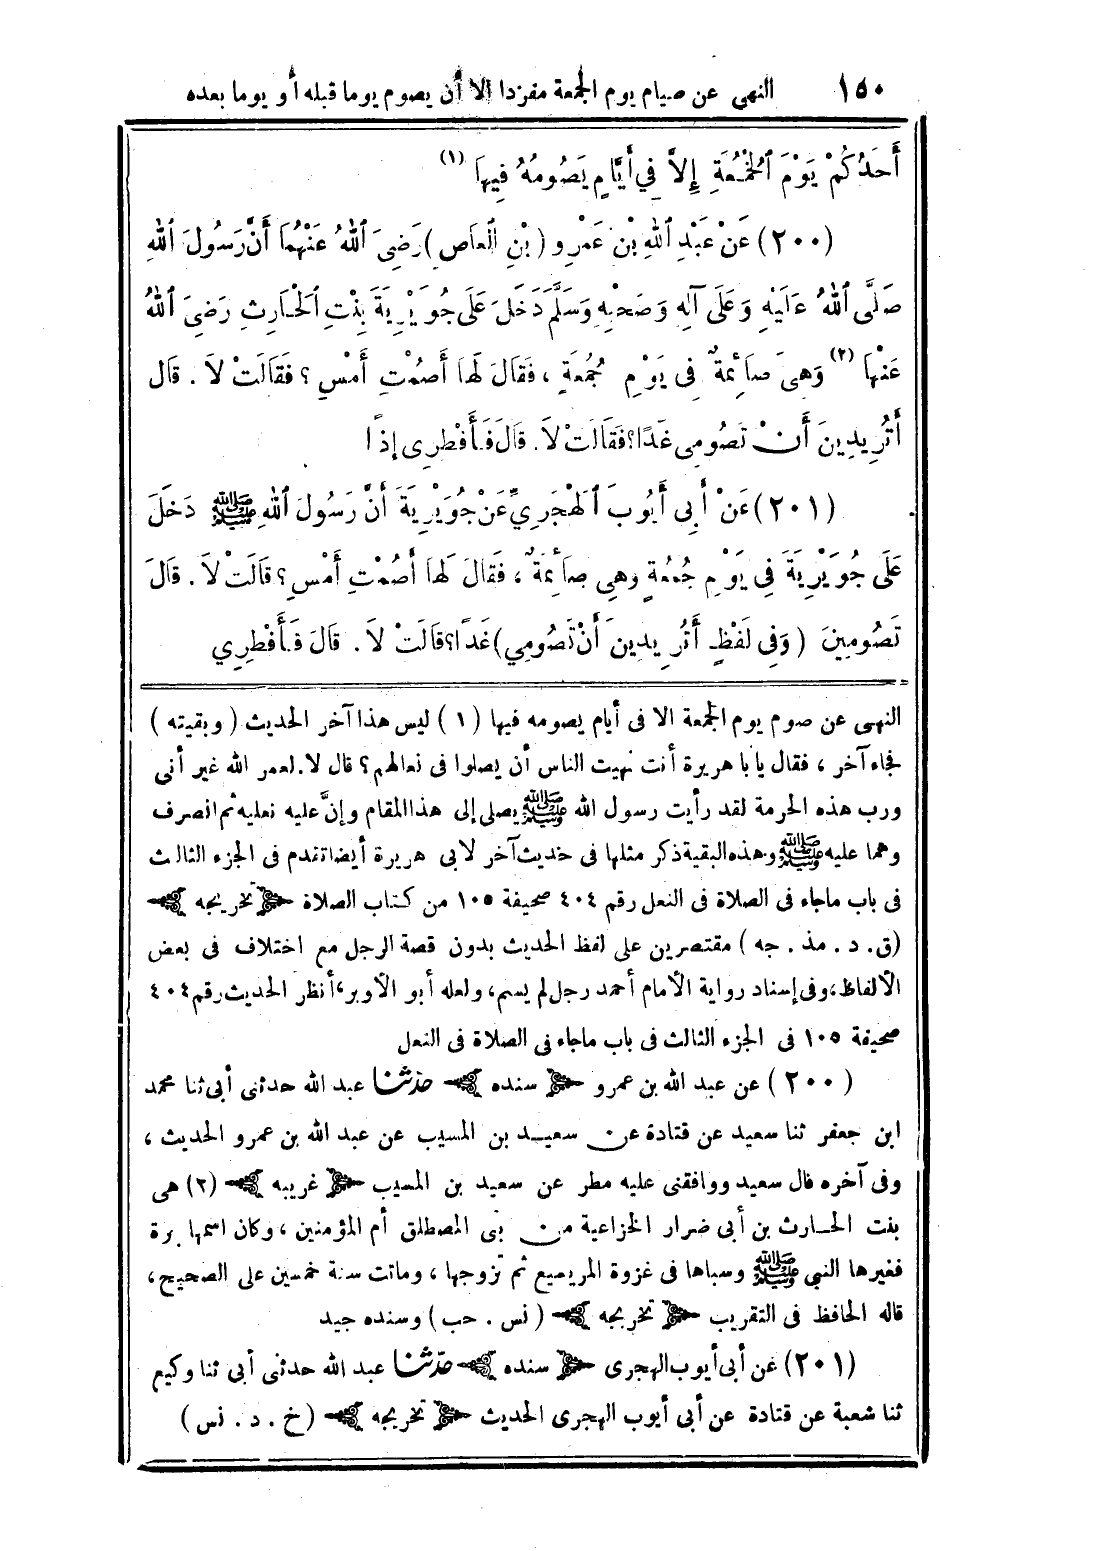 ١٥٠ النهى عن صيام يوم الجمعة مفردا الا أن يصوم يوما قبله أو يوما بعده
أَحَدُكُمْ يَوْمَ ٱلْجُمُعَةِ إِلاَّ فِي أَيَّامٍ يَصُومُهُ فِيهَا (١)
(٢٠٠) عَنْ عَبْدِ ٱللهِ بْنِ عَمْرٍو (بْنِ ٱلْعَاصِ) رَضِيَ ٱللهُ عَنْهُمَا أَنَّ رَسُولَ ٱللهِ
صَلَّى ٱللهُ عَلَيْهِ وَعَلَى آلِهِ وَصَحْبِهِ وَسَلَّمَ دَخَلَ عَلَى جُوَيْرِيَةَ بِنْتِ ٱلْحَارِثِ رَضِيَ ٱللهُ
عَنْهَا (٢) وَهِيَ صَائِمَةٌ فِى يَوْمِ جُمُعَةٍ ، فَقَالَ لَهَا أَصُمْتِ أَمْسِ ؟ فَقَالَتْ لاَ . قَالَ
أَتُرِيدِينَ أَنْ تَصُومِى غَدًا؟ فَقَالَتْ لاَ. قَالَ فَأَفْطِرِى إِذًا
(٢٠١) عَنْ أَبِى أَيُّوبَ ٱلْهَجَرِيِّ عَنْ جُوَيْرِيَةَ أَنَّ رَسُولَ ٱللهِ ﷺ دَخَلَ
عَلَى جُوَيْرِيَةَ فِى يَوْمِ جُمُعَةٍ وَهِىَ صَائِمَةٌ ، فَقَالَ لَهَا أَصُمْتِ أَمْسِ ؟ قَالَتْ لاَ . قَالَ
تَصُومِينَ (وَفِى لَفْظٍ أَتُرِيدِينَ أَنْ تَصُومِي) غَدًا؟ قَالَتْ لاَ . قَالَ فَأَفْطِرِي
النهى عن صوم يوم الجمعة الا فى أيام يصومه فيها (١) ليس هذا آخر الحديث (وبقيته)
فجاء آخر ، فقال يا با هريرة أنت نهيت الناس أن يصلوا فى نعالهم؟ قال لا. لعمر الله غير أنى
ورب هذه الحرمة لقد رأيت رسول الله ﷺ يصلى إلى هذا المقام وإنَّ عليه نعليه ثم انصرف
وهما عليه ﷺ وهذه البقية ذكر مثلها فى حديث آخر لابى هريرة أيضا تقدم فى الجزء الثالث
فى باب ماجاء فى الصلاة فى النعل رقم ٤٠٤ صحيفة ١٠٥ من كتاب الصلاة تخريجه
(ق . د . مذ . جه) مقتصرين على لفظ الحديث بدون قصة الرجل مع اختلاف فى بعض
الألفاظ، وفى إسناد رواية الأمام أحمد رجل لم يسم، ولعله أبو الأوبر، أنظر الحديث رقم ٤٠٤
صحيفة ١٠٥ فى الجزء الثالث فى باب ماجاء فى الصلاة فى النعل
(٢٠٠) عن عبد الله بن عمرو سنده حدثنا عبد الله حدثنى أبى ثنا محمد
ابن جعفر ثنا سعيد عن قتادة عن سعيد بن المسيب عن عبد الله بن عمرو الحديث ،
وفى آخره قال سعيد ووافقنى عليه مطر عن سعيد بن المسيب غريبه (٢) هى
بنت الحارث بن أبى ضرار الخزاعية من بنى المصطلق أم المؤمنين ، وكان اسمها برة
فغيرها النبي ﷺ وسباها فى غزوة المريسيع ثم تزوجها ، وماتت سنة خمسين على الصحيح،
قاله الحافظ فى التقريب تخريجه (نس . حب) وسنده جيد
(٢٠١) عن أبى أيوب الهجرى سنده حدثنا عبد الله حدثنى أبى ثنا وكيع
ثنا شعبة عن قتادة عن أبى أيوب الهجرى الحديث تخريجه (خ . د . نس)